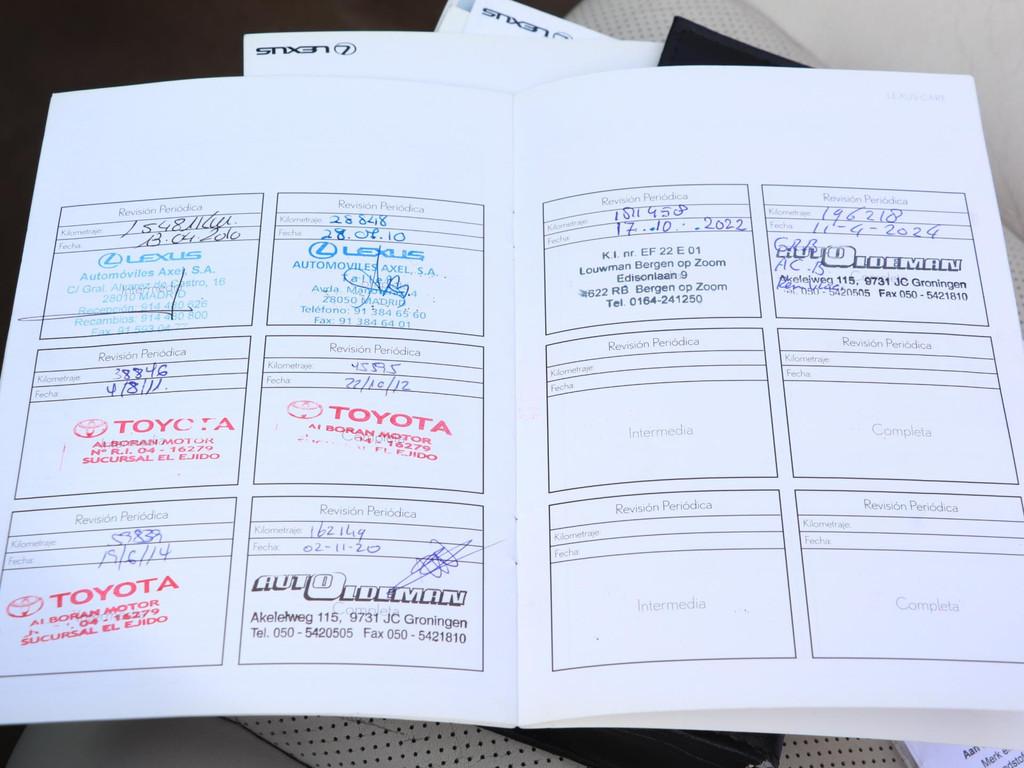 LEXUS
LEXUS
LEXUS CARE
Revisión Periódica
Kilometraje: 15481 Km.
Fecha: 13.04.2010
LEXUS
Automóviles Axel, S.A.
C/ Gral. Alvarez de Castro, 16
28010 MADRID
Recepción: 914 480 626
Recambios: 914 480 800
Fax: 91 593 04
Revisión Periódica
Kilometraje: 28848
Fecha: 28.07.10
LEXUS
AUTOMOVILES AXEL, S.A.
Avda. Manoteras,
28050 MADRID
Teléfono: 91 384 65 60
Fax: 91 384 64 01
Revisión Periódica
Kilometraje: 38846
Fecha: 4/8/11.
TOYOTA
ALBORAN MOTOR
Nº R.I. 04 - 16279
SUCURSAL EL EJIDO
Revisión Periódica
Kilometraje: 45595
Fecha: 22/10/12
TOYOTA
ALBORAN MOTOR
04 - 16279
EL EJIDO
Revisión Periódica
Kilometraje:
Fecha: 19/6/14
TOYOTA
ALBORAN MOTOR
04 - 16279
SUCURSAL EL EJIDO
Revisión Periódica
Kilometraje: 162149
Fecha: 02-11-20
AUTO OLDEMAN
Completa
Akelelweg 115, 9731 JC Groningen
Tel. 050 - 5420505 Fax 050 - 5421810
Revisión Periódica
Kilometraje: 181458
Fecha: 17.10.2022
K.I. nr. EF 22 E 01
Louwman Bergen op Zoom
Edisonlaan 9
4622 RB Bergen op Zoom
Tel. 0164-241250
Revisión Periódica
Kilometraje: 196218
Fecha: 11-4-2024
AUTO OLDEMAN
Akelelweg 115, 9731 JC Groningen
Tel. 050 - 5420505 Fax 050 - 5421810
Revisión Periódica
Kilometraje:
Fecha:
Intermedia
Revisión Periódica
Kilometraje:
Fecha:
Completa
Revisión Periódica
Kilometraje:
Fecha:
Intermedia
Revisión Periódica
Kilometraje:
Fecha:
Completa